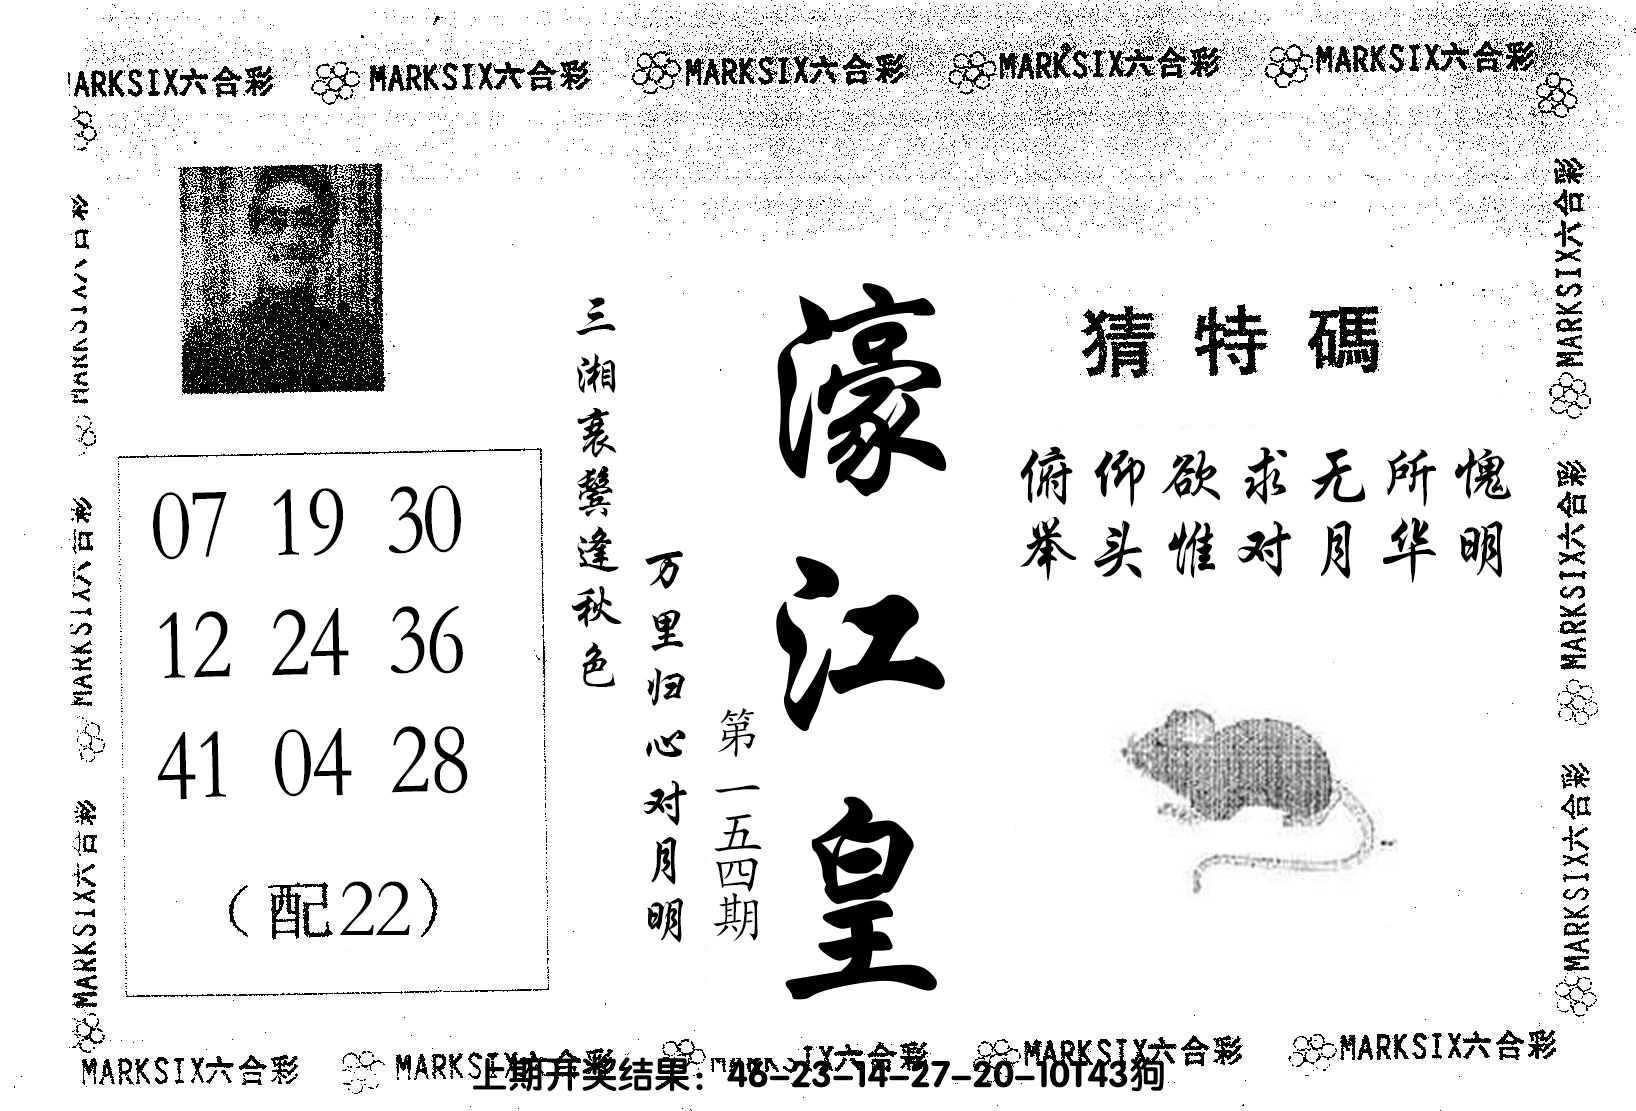 MARKSIX六合彩 MARKSIX六合彩 MARKSIX六合彩 MARKSIX六合彩 MARKSIX六合彩
猜特碼
俯仰欲求无所愧
举头惟对月华明
濠江皇
第一五四期
三湘衰鬓逢秋色
万里归心对月明
07 19 30
12 24 36
41 04 28
（配22）
MARKSIX六合彩
MARKSIX六合彩
MARKSIX六合彩
MARKSIX六合彩
MARKSIX六合彩
MARKSIX六合彩
MARKSIX六合彩 MARKSIX六合彩 MARKSIX六合彩 MARKSIX六合彩 MARKSIX六合彩
上期开奖结果：46-23-14-27-20-10T43狗